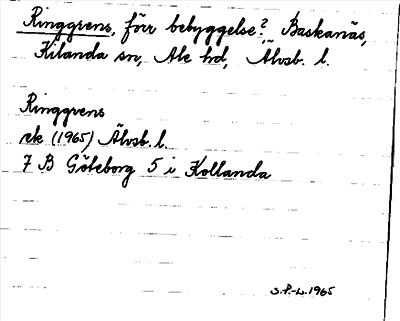 Ringgrens, förr bebyggelse? Baskanäs,
Kilanda sn, Ale hd, Älvsb. l.
Ringgrens
ek (1965) Älvsb. l.
7 B Göteborg 5 i Kollanda
S.P.-L. 1965